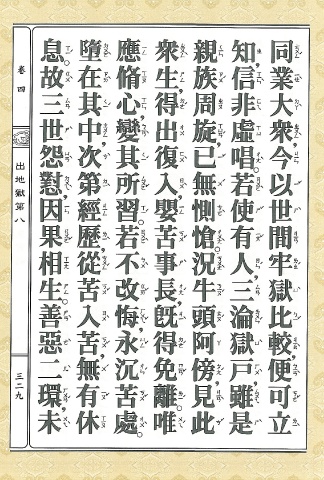 同業大衆，今以世間牢獄比較，便可立
知，信非虛唱。若使有人，三淪獄戶，雖是
親族周旋，已無惻愴，況牛頭阿傍，見此
衆生，得出復入，嬰苦事長，旣得免離，唯
應脩心，變其所習。若不改悔，永沉苦處，
墮在其中，次第經歷，從苦入苦，無有休
息。故三世怨懟，因果相生。善惡二環，未
卷四
出地獄第八
三二九